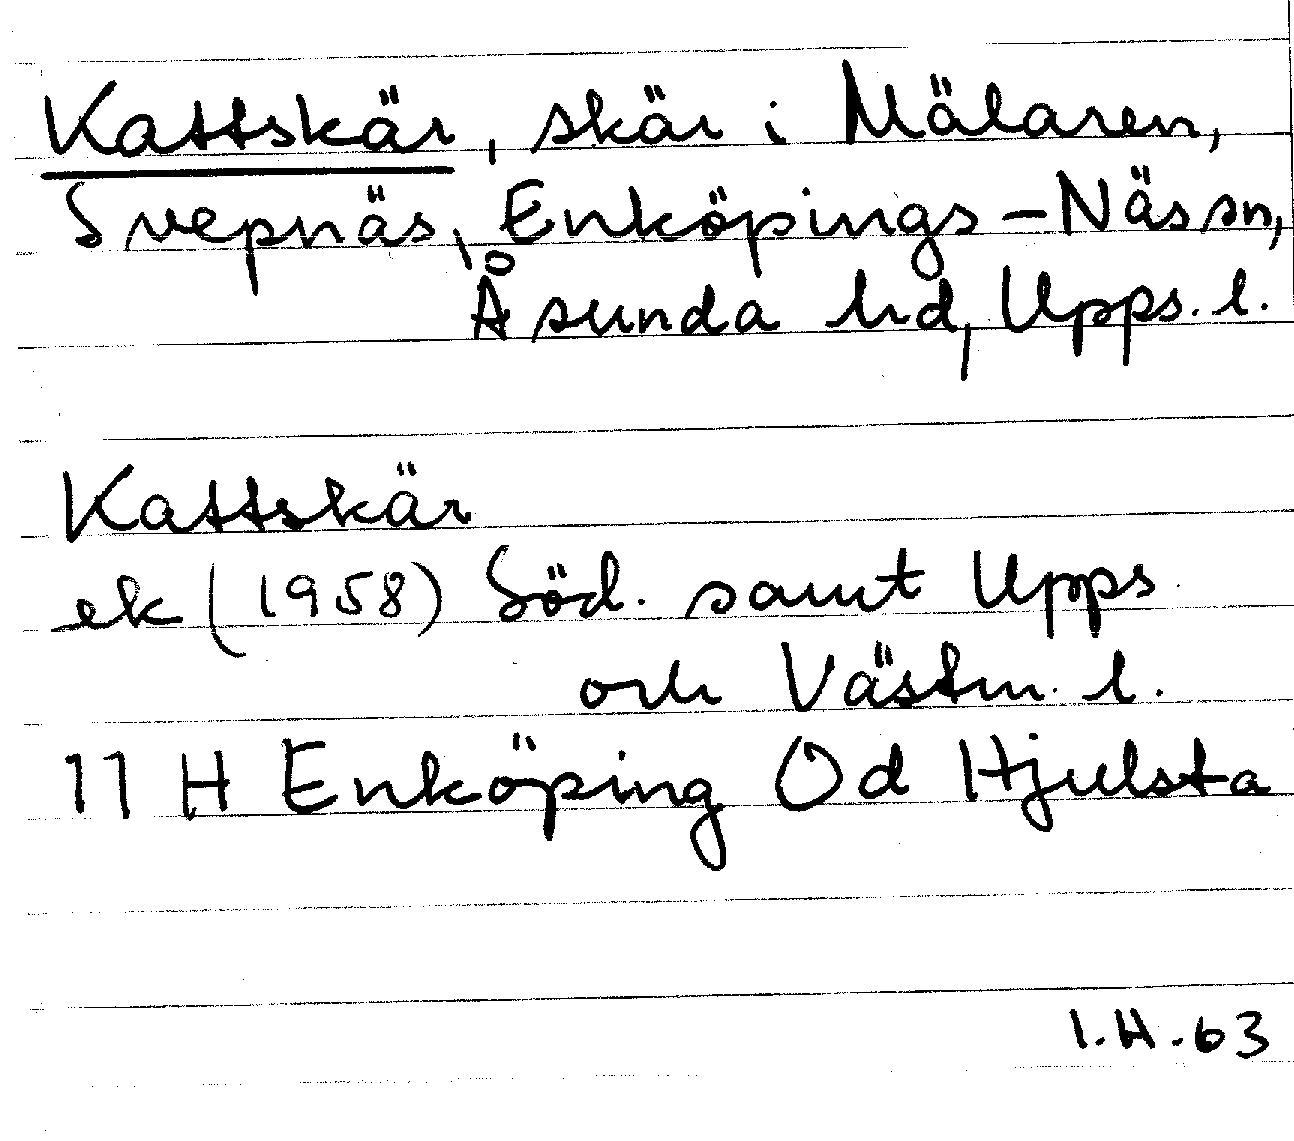 Kattskär, skär i Mälaren,
Svepnäs, Enköpings-Näs sn,
Åsunda hd, Upps. l.
Kattskär
ek (1958) Söd. samt Upps.
och Västm. l.
11 H Enköping Od Hjulsta
I.H.63